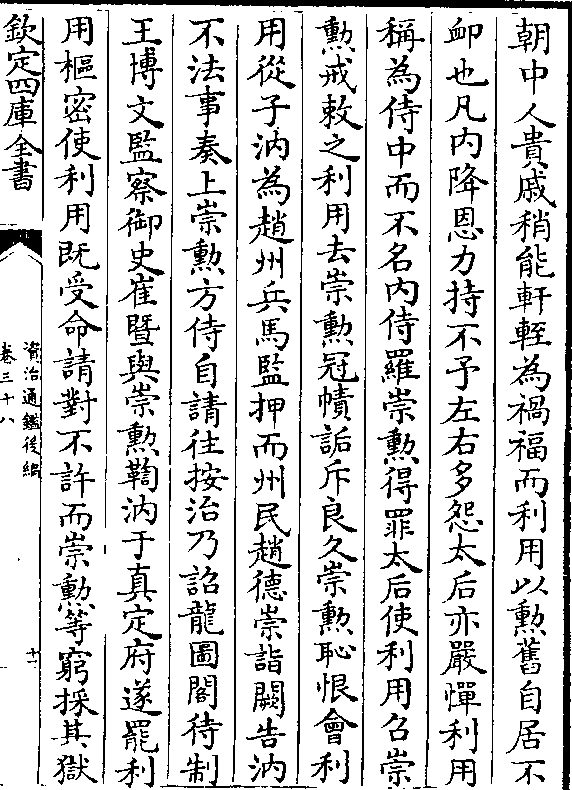 朝中人貴戚稍能軒輊為禍福而利用以勲舊自居不
䘏也凡内降恩力持不予左右多怨太后亦嚴憚利用
稱為侍中而不名内侍羅崇勲得罪太后使利用召崇
勲戒敕之利用去崇勲冠幘詬斥良久崇勲恥恨會利
用從子汭為趙州兵馬監押而州民趙德崇詣闕告汭
不法事奏上崇勲方侍自請往按治乃詔龍圖閣待制
王博文監察御史崔暨與崇勲鞫汭于真定府遂罷利
用樞密使利用既受命請對不許而崇勲等窮採其獄
欽定四庫全書
資治通鑑後編
卷三十八
十一